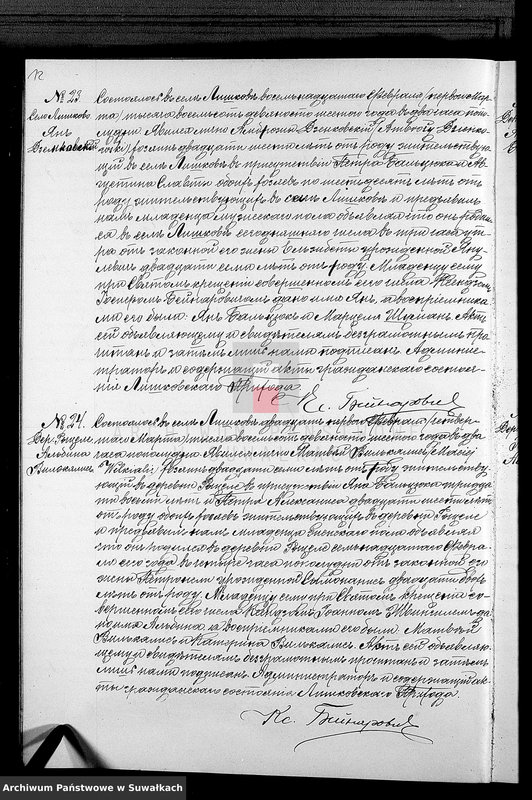 12
№ 23.
Село Лишково
Ян
Вленковский
Состоялось въ селѣ Лишковѣ восемнадцатаго Февраля /перваго Мар-
та/ тысяча восемьсотъ девяносто шестого года въ два часа попо-
лудни. Явился лично Амброжи
ковскiй/ земледѣлецъ двадцати шести лѣтъ отъ роду жительствую-
щiй въ селѣ Лишковѣ въ присутствiи Петра Бальцюка и Ав-
густина Славты обоихъ земледѣльцевъ по шестьдесятъ лѣтъ отъ
роду жительствующихъ въ селѣ Лишковѣ и предъявилъ
намъ младенца мужескаго пола объявляя что онъ родил-
ся въ селѣ Лишковѣ сегодняшняго числа въ три часа ут-
ра отъ законной его жены Эльжбеты урожденной Яну-
левичъ двадцати семи лѣтъ отъ роду. Младенцу сему
при Святомъ крещенiи совершенномъ сего числа Ксендзомъ
дано имя Янъ, а воспрiемника-
ми его были: Янъ Бальцюкъ и Марцеля Шуманъ. Актъ
сей объявляющему и свидѣтелямъ безграмотнымъ про-
читанъ и затѣмъ лишь нами подписанъ. Админис-
траторъ и содержащiй акты гражданскаго состоя-
нiя Лишковскаго Прихода.
Кс.
№ 24.
Дер.
Альбина
Вилькялисъ
Состоялось въ селѣ Лишковѣ двадцать перваго Февраля /четвер-
таго Марта/ тысяча восемьсотъ девяносто шестого года въ два
часа пополудни. Явился лично Матвѣй Вилькялисъ /Maciej
Wilkialis/ двадцати семи лѣтъ отъ роду жительству-
ющiй въ деревнѣ въ присутствiи Яна Бальцюка тридца-
ти восьми лѣтъ и Петра Алексаниса двадцати шести лѣтъ
отъ роду обоихъ земледѣльцевъ жительствующихъ въ деревнѣ
и предъявилъ намъ младенца женскаго пола объявляя
что онъ родился въ деревнѣ семнадцатаго Февра-
ля сего года въ четыре часа пополудни отъ законной его
жены Петронели урожденной двадцати двухъ
лѣтъ отъ роду. Младенцу сему при Святомъ крещенiи со-
вершенномъ сего числа Ксендзомъ Iоанномъ да-
но имя Альбина, а воспрiемниками его были: Матвѣй
Вилькялисъ и Катерина Вилькялисъ. Актъ сей объявляю-
щему и свидѣтелямъ безграмотнымъ прочитанъ и затѣмъ
лишь нами подписанъ. Администраторъ и содержащiй ак-
ты гражданскаго состоянiя Лишковскаго Прихода.
Кс.
Archiwum Państwowe w Suwałkach